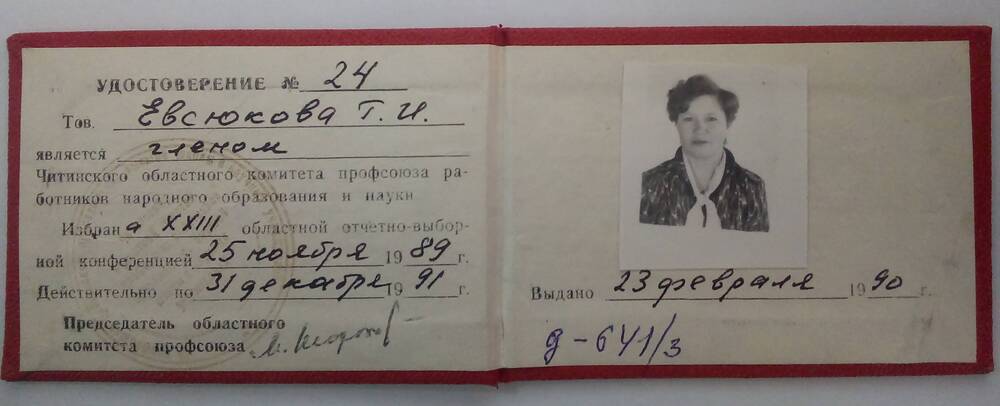 УДОСТОВЕРЕНИЕ № 24
Тов. Евсюкова Т. И.
является членом
Читинского областного комитета профсоюза ра-
ботников народного образования и науки
Избрана XXIII областной отчетно-выбор-
ной конференцией 25 ноября 1989 г.
Действительно по 31 декабря 1991 г.
Председатель областного
комитета профсоюза
Выдано 23 февраля 1990 г.
д-641/3